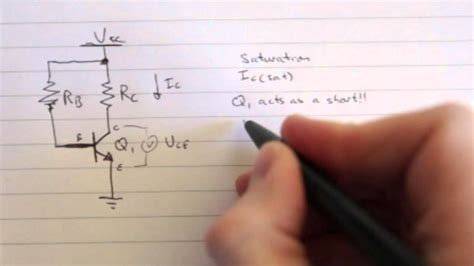 Vcc
RB
RC
Ic
C
B
Q1
V
VCE
E
Saturation
Ic(sat)
Q1 acts as a short!!